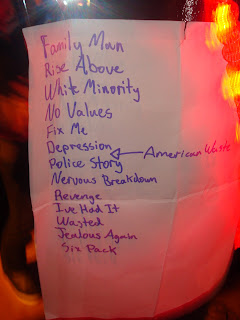 Family Man
Rise Above
White Minority
No Values
Fix Me
Depression
American Waste
Police Story
Nervous Breakdown
Revenge
I've Had It
Wasted
Jealous Again
Six Pack